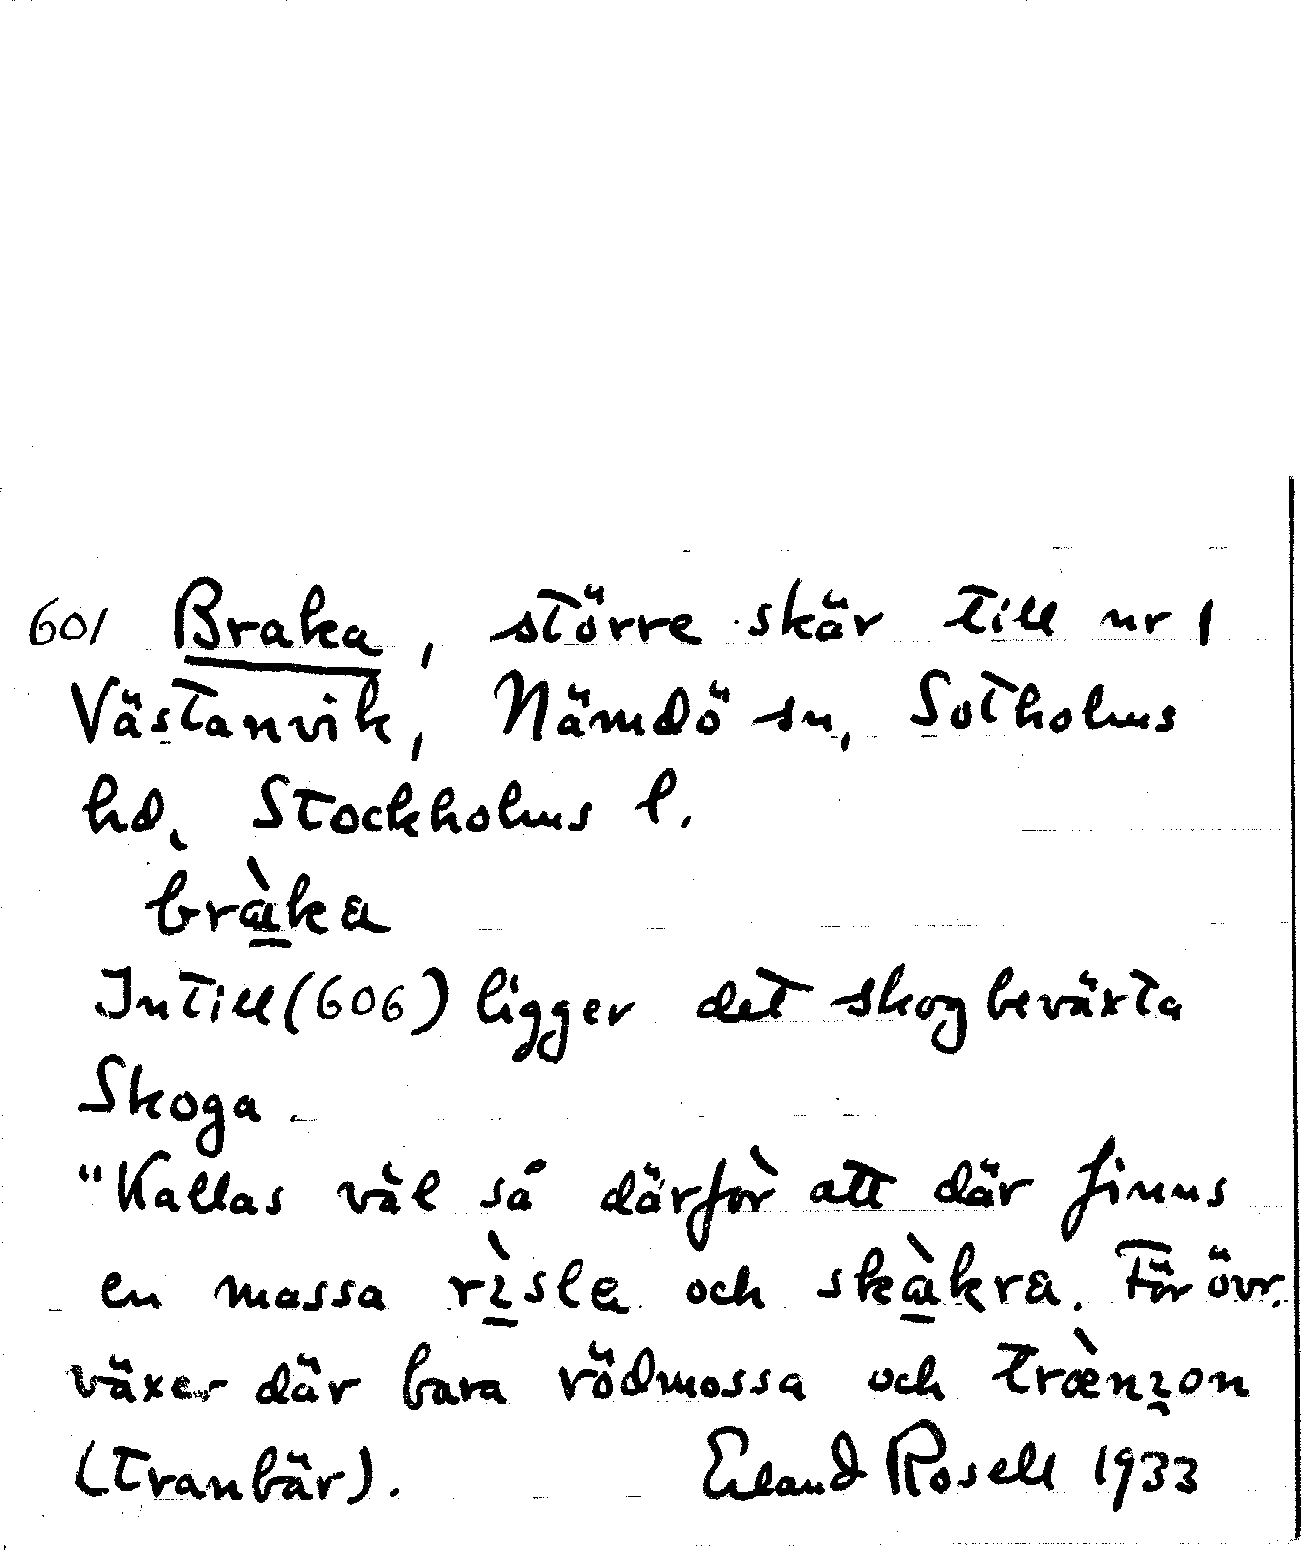 601 Braka, större skär till nr 1
Västanvik, Nämdö sn, Sotholms
hd. Stockholms l.
brà̱ka
Intill (606) ligger det skogbeväxta
Skoga.
"Kallas väl så därför att där finns
en massa rì̱sla och skà̱kra. För övr.
växer där bara rödmossa och trænɩon
(tranbär). Erland Rosell 1933